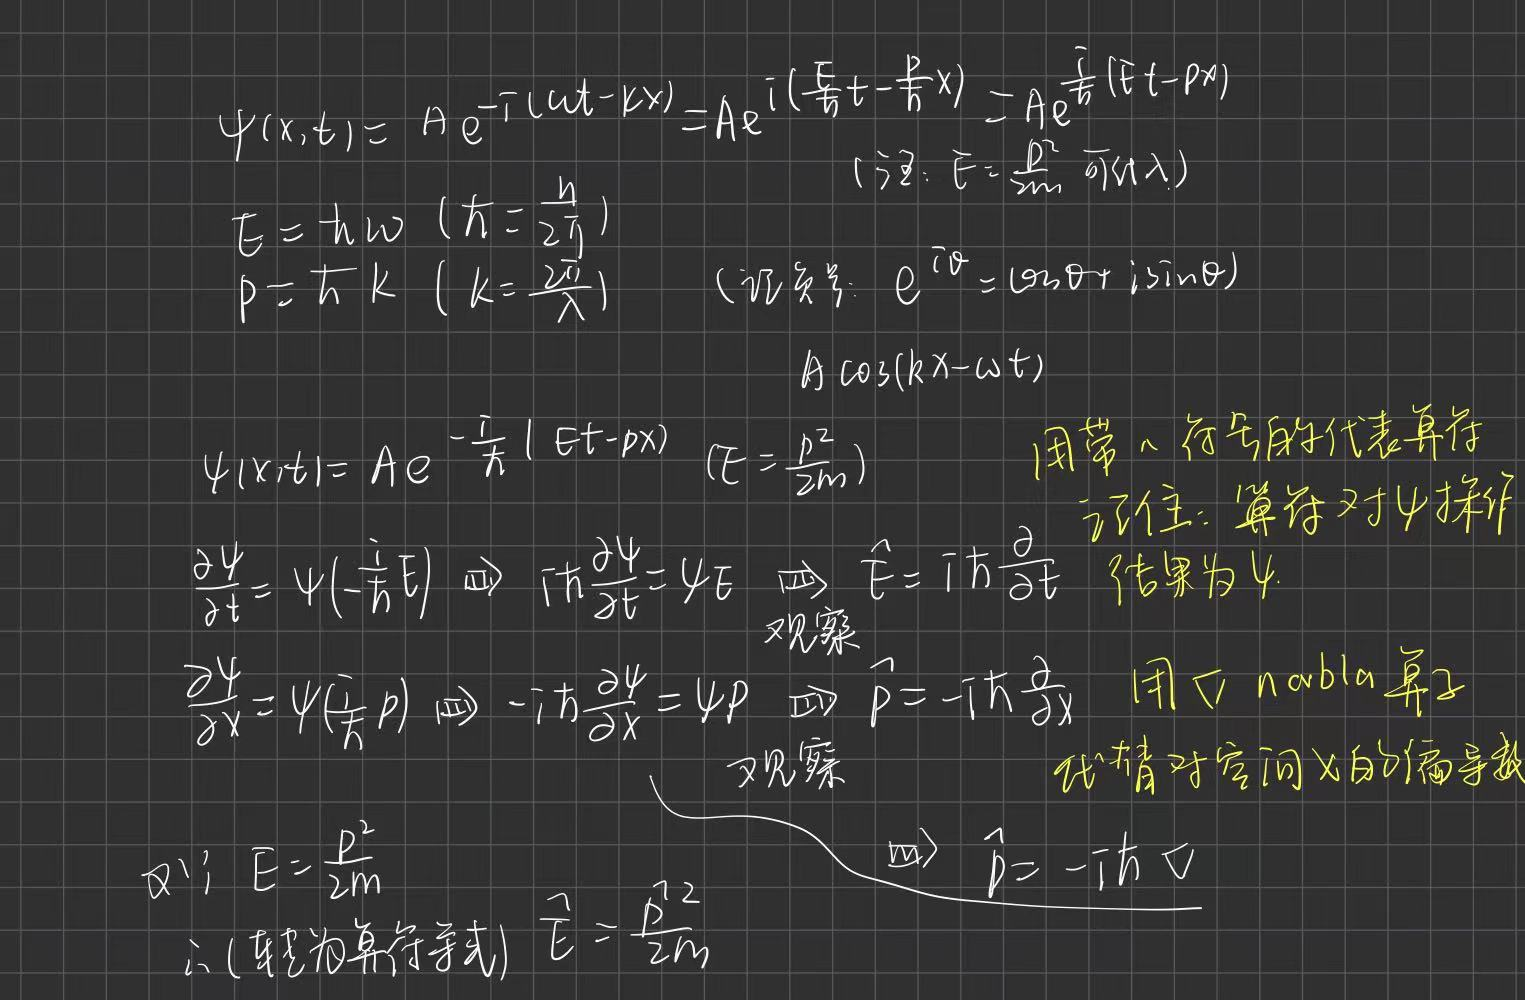 ψ(x,t) = Ae^{-i(ωt-kx)} = Ae^{i(\frac{E}{ħ}t-\frac{p}{ħ}x)} = Ae^{\frac{i}{ħ}(Et-px)}
(注: E = \frac{p²}{2m} 可代入)
E = ħω (ħ = \frac{h}{2π})
p = ħk (k = \frac{2π}{λ})
(证负号: e^{iθ} = cosθ + isinθ)
A cos(kx-ωt)
ψ(x,t) = Ae^{-\frac{i}{ħ}(Et-px)} (E = \frac{p²}{2m})
用带 ∧ 符号的代表算符
记住: 算符对ψ操作
结果为ψ.
\frac{∂ψ}{∂t} = ψ(-\frac{i}{ħ}E) ⇒ iħ\frac{∂ψ}{∂t} = ψE ⇒ \hat{E} = iħ\frac{∂}{∂t}
观察
\frac{∂ψ}{∂x} = ψ(\frac{i}{ħ}p) ⇒ -iħ\frac{∂ψ}{∂x} = ψp ⇒ \hat{p} = -iħ\frac{∂}{∂x}
观察
用 ∇ nabla 算子
代替对空间x的偏导数
⇒ \hat{p} = -iħ∇
又∵ E = \frac{p²}{2m}
∴ (转为算符形式) \hat{E} = \frac{\hat{p}²}{2m}